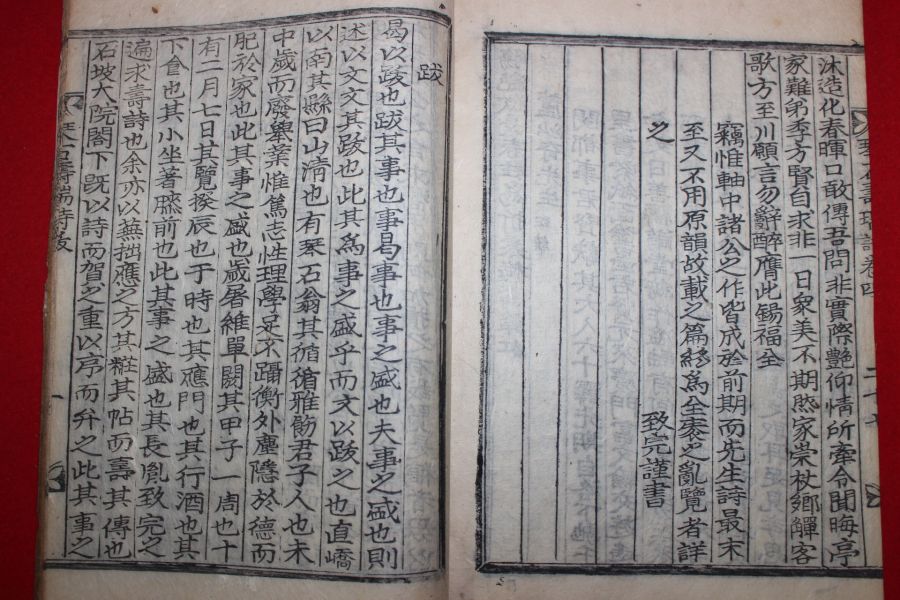 沐造化春暉口敢傳吾問非實際艶仰情所牽令聞晦亭
家難弟季方賢自求非一日衆美不期然家崇杖鄉觶客
歌方至川願言勿辭醉膺此錫福全
竊惟軸中諸公之作皆成於前期而先生詩最末
至又不用原韻故載之篇終爲全袠之亂覽者詳
之
致完謹書
跋
曷以跋也跋其事也事曷事也事之盛也夫事之盛也則
述以文文其跋也此其爲事之盛乎而文以跋之也直嶠
以南其縣曰山淸也有琹石翁其循循雅飭君子人也未
中歲而廢擧業惟篤志性理學足不躡衡外塵隱於德而
肥於家也此其事之盛也歲屠維單閼其甲子一周也十
有二月七日其覽揆辰也于時也其應門也其行酒也其
下食也其小坐著膝前也此其事之盛也其長胤致完之
遍求壽詩也余亦以蕪拙應之方其糚其帖而壽其傳也
石坡大院閤下旣以詩而賀之重以序而弁之此其事之
石壽瑞詩跋
一